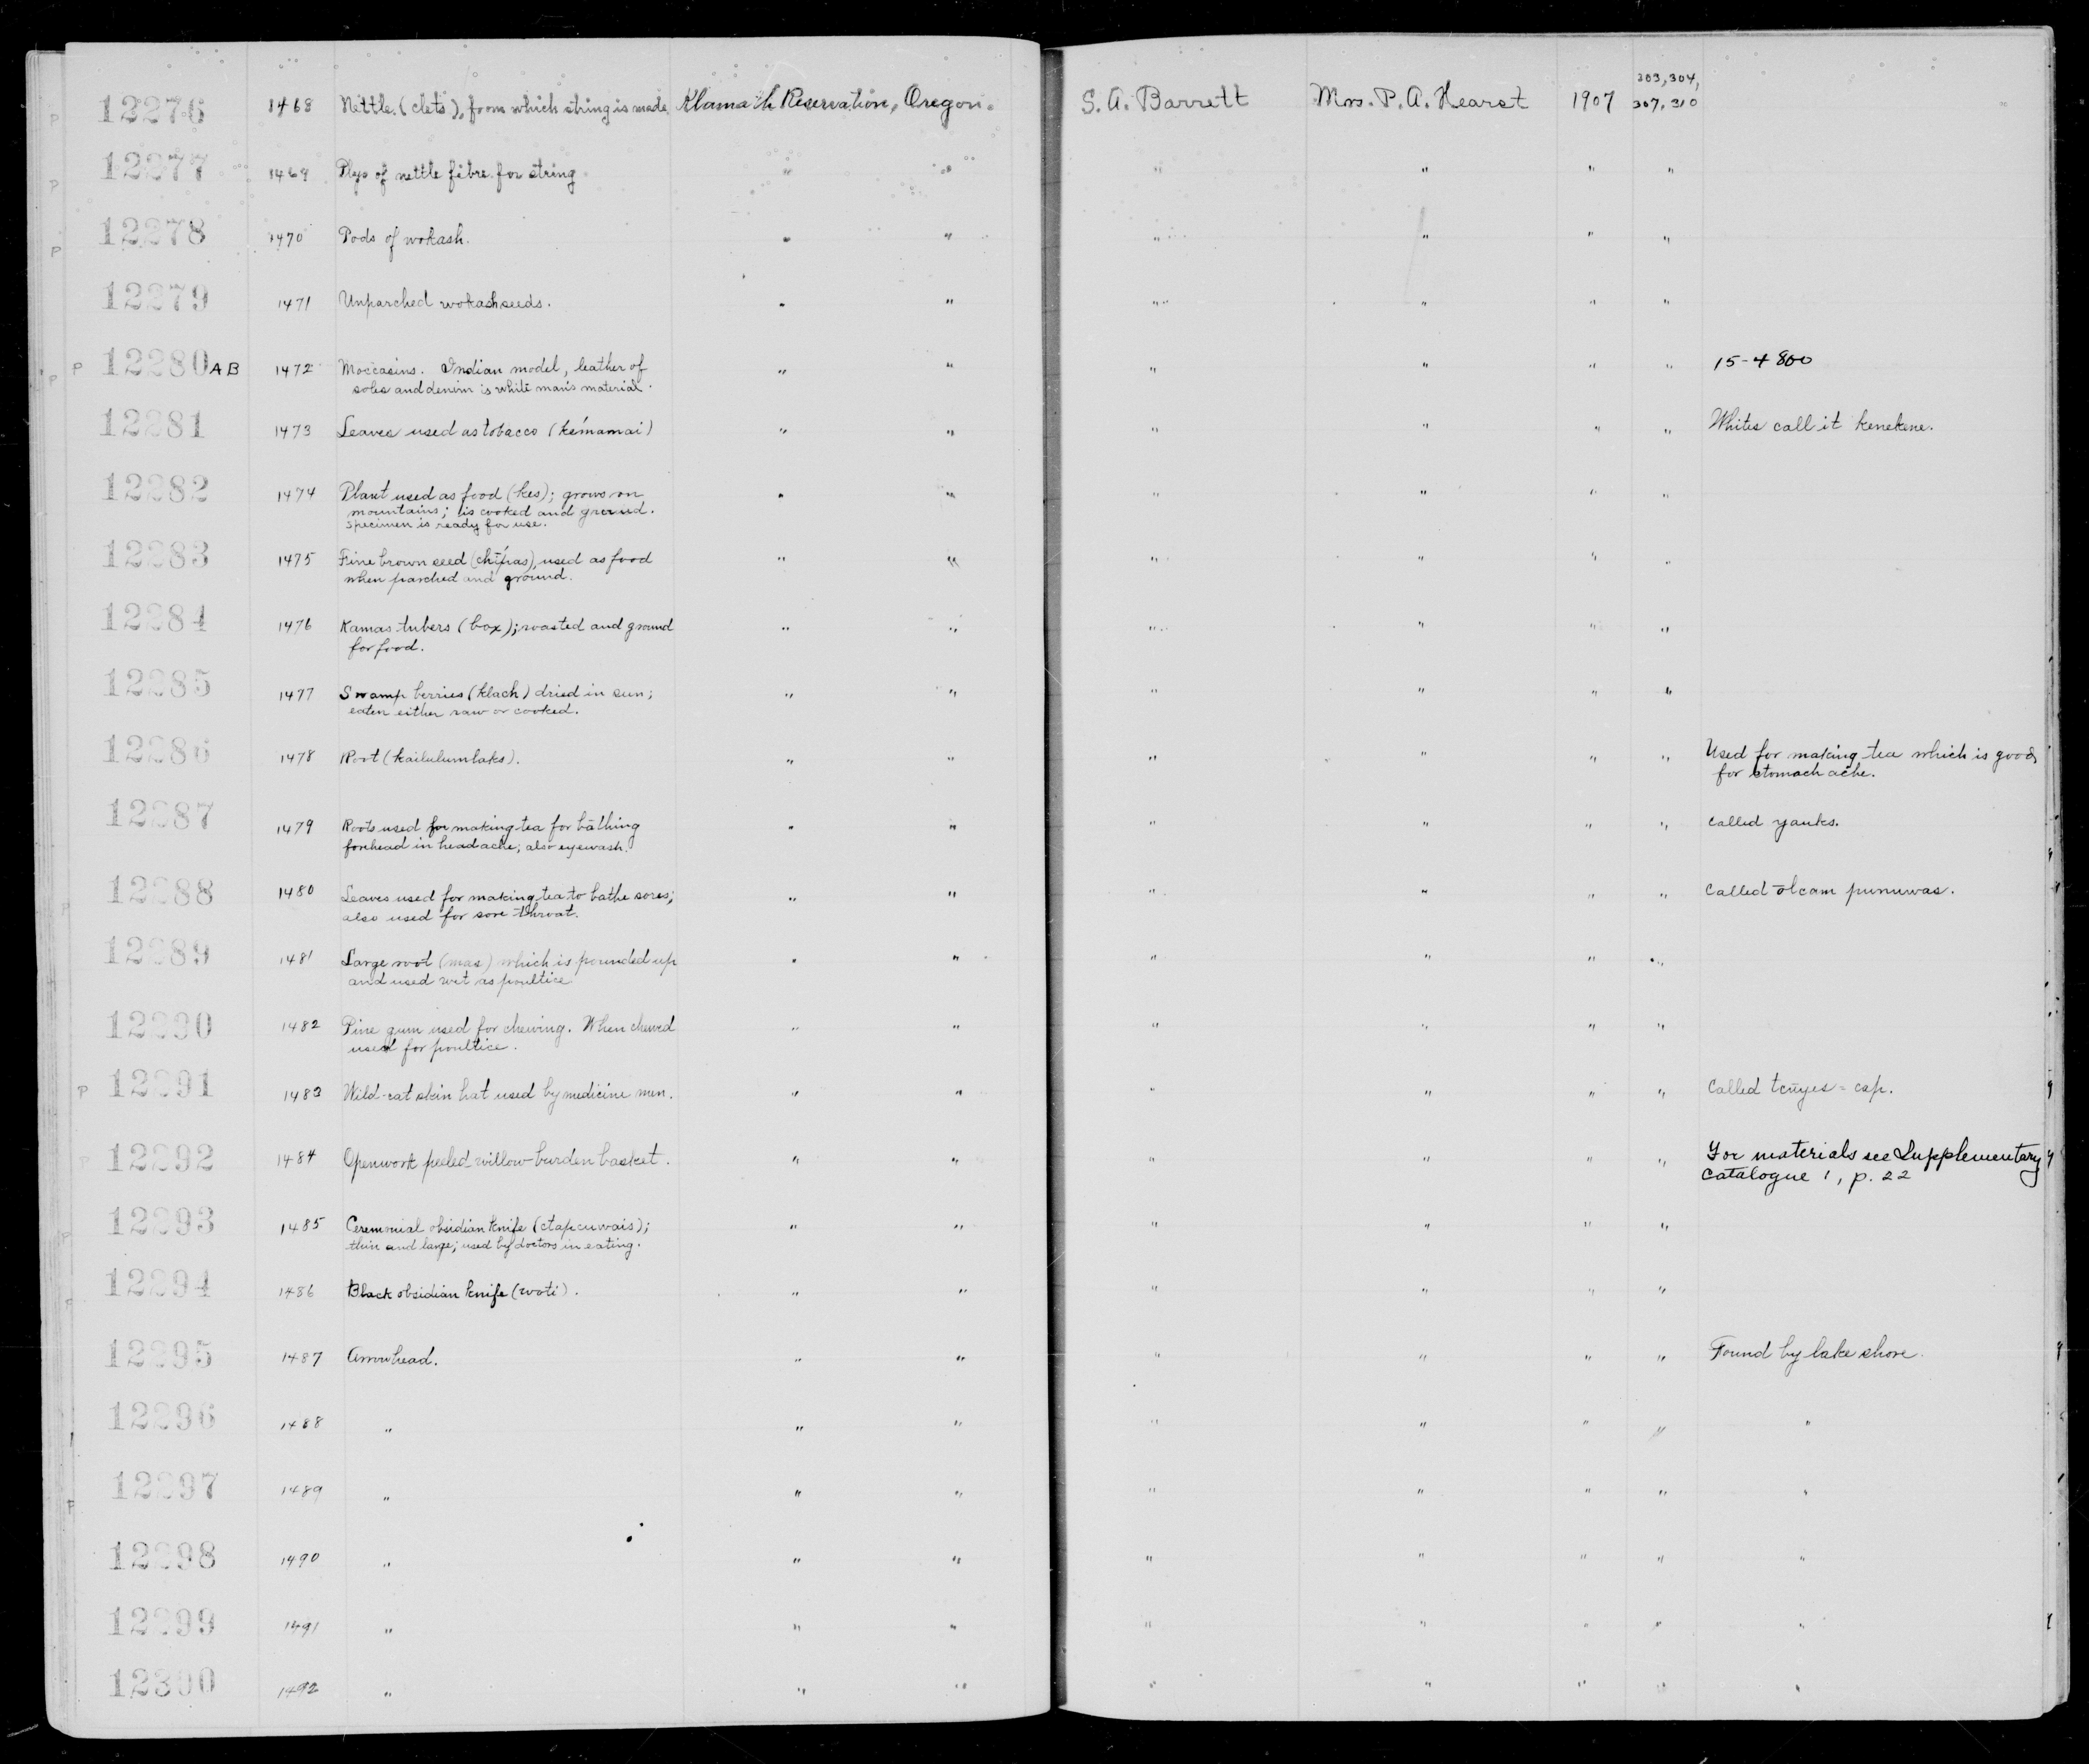 303, 304,
P 12276 1468 Nettle (clets), from which string is made. Klamath Reservation, Oregon. S. A. Barrett Mrs. P. A. Hearst 1907 307, 310
P 12277 1469 Plys of nettle fibre for string " " " " " "
P 12278 1470 Pods of wokash. " " " " " "
12279 1471 Unparched wokash seeds. " " " " " "
P 12280 A B 1472 Moccasins. Indian model, leather of " " " " " " 15-4800
soles and denim is white man's material.
12281 1473 Leaves used as tobacco (kémamai) " " " " " " Whites call it kenekene.
12282 1474 Plant used as food (kes); grows on " " " " " "
mountains; is cooked and ground.
Specimen is ready for use.
12283 1475 Fine brown seed (chípas), used as food " " " " " "
when parched and ground.
12284 1476 Kamas tubers (box); roasted and ground " " " " " "
for food.
12285 1477 Swamp berries (klach) dried in sun; " " " " " "
eaten either raw or cooked.
12286 1478 Root (kailulumlaks). " " " " " " Used for making tea which is good
for stomach ache.
12287 1479 Roots used for making tea for bathing " " " " " " Called yauks.
forehead in headache; also eyewash.
12288 1480 Leaves used for making tea to bathe sores; " " " " " " Called ōlcam punuwas.
also used for sore throat.
12289 1481 Large root (mas) which is pounded up " " " " " "
and used wet as poultice
12290 1482 Pine gum used for chewing. When chewed " " " " " "
used for poultice.
P 12291 1483 Wild-cat skin hat used by medicine men. " " " " " " Called tcūyes = cap.
12292 1484 Openwork peeled willow burden basket. " " " " " " For materials see Supplementary
Catalogue 1, p. 22
12293 1485 Ceremonial obsidian knife (ctapcuwais); " " " " " "
thin and large; used by doctors in eating.
12294 1486 Black obsidian knife (wati). " " " " " "
12295 1487 Arrowhead. " " " " " " Found by lake shore.
12296 1488 " " " " " " " "
12297 1489 " " " " " " " "
12298 1490 " " " " " " " "
12299 1491 " " " " " " " "
12300 1492 " " " " " " " "